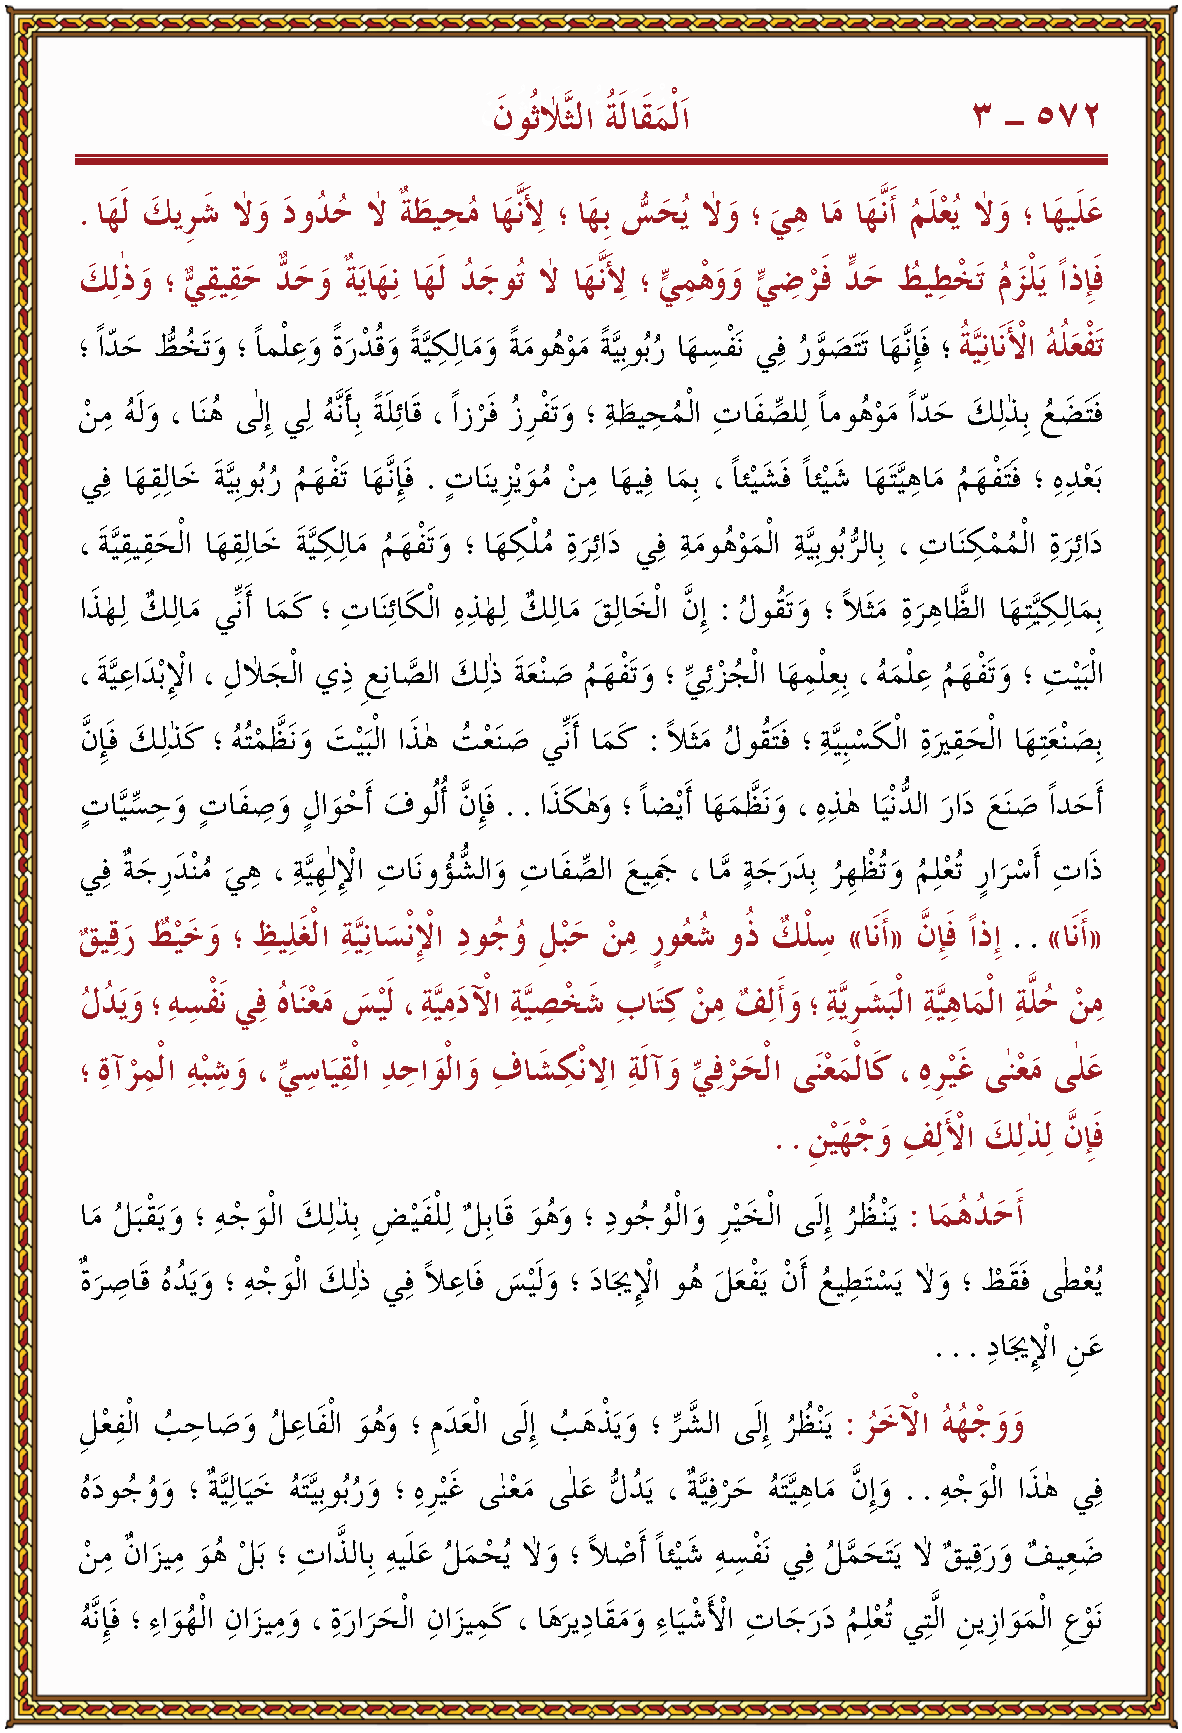 ٥٧٢ ـ ٣ اَلْمَقَالَةُ الثَّلاٰثُونَ
عَلَيهَا ؛ وَلاٰ يُعْلَمُ أَنَّهَا مَا هِيَ ؛ وَلاٰ يُحَسُّ بِهَا ؛ لِأَنَّهَا مُحِيطَةٌ لاٰ حُدُودَ وَلاٰ شَرِيكَ لَهَا .
فَإِذاً يَلْزَمُ تَخْطِيطُ حَدٍّ فَرْضِيٍّ وَوَهْمِيٍّ ؛ لِأَنَّهَا لاٰ تُوجَدُ لَهَا نِهَايَةٌ وَحَدٌّ حَقِيقِيٌّ ؛ وَذٰلِكَ
تَفْعَلُهُ الْأَنَانِيَّةُ ؛ فَإِنَّهَا تَتَصَوَّرُ فِي نَفْسِهَا رُبُوبِيَّةً مَوْهُومَةً وَمَالِكِيَّةً وَقُدْرَةً وَعِلْماً ؛ وَتَخُطُّ حَدّاً ؛
فَتَضَعُ بِذٰلِكَ حَدّاً مَوْهُوماً لِلصِّفَاتِ الْمُحِيطَةِ ؛ وَتَفْرِزُ فَرْزاً ، قَائِلَةً بِأَنَّهُ لِي إِلٰى هُنَا ، وَلَهُ مِنْ
بَعْدِهِ ؛ فَتَفْهَمُ مَاهِيَّتَهَا شَيْئاً فَشَيْئاً ، بِمَا فِيهَا مِنْ مُوَيْزِينَاتٍ . فَإِنَّهَا تَفْهَمُ رُبُوبِيَّةَ خَالِقِهَا فِي
دَائِرَةِ الْمُمْكِنَاتِ ، بِالرُّبُوبِيَّةِ الْمَوْهُومَةِ فِي دَائِرَةِ مُلْكِهَا ؛ وَتَفْهَمُ مَالِكِيَّةَ خَالِقِهَا الْحَقِيقِيَّةَ ،
بِمَالِكِيَّتِهَا الظَّاهِرَةِ مَثَلاً ؛ وَتَقُولُ : إِنَّ الْخَالِقَ مَالِكٌ لِهٰذِهِ الْكَائِنَاتِ ؛ كَمَا أَنِّي مَالِكٌ لِهٰذَا
الْبَيْتِ ؛ وَتَفْهَمُ عِلْمَهُ ، بِعِلْمِهَا الْجُزْئِيِّ ؛ وَتَفْهَمُ صَنْعَةَ ذٰلِكَ الصَّانِعِ ذِي الْجَلاٰلِ ، الْإِبْدَاعِيَّةَ ،
بِصَنْعَتِهَا الْحَقِيرَةِ الْكَسْبِيَّةِ ؛ فَتَقُولُ مَثَلاً : كَمَا أَنِّي صَنَعْتُ هٰذَا الْبَيْتَ وَنَظَّمْتُهُ ؛ كَذٰلِكَ فَإِنَّ
أَحَداً صَنَعَ دَارَ الدُّنْيَا هٰذِهِ ، وَنَظَّمَهَا أَيْضاً ؛ وَهٰكَذَا . . فَإِنَّ أُلُوفَ أَحْوَالٍ وَصِفَاتٍ وَحِسِّيَّاتٍ
ذَاتِ أَسْرَارٍ تُعْلِمُ وَتُظْهِرُ بِدَرَجَةٍ مَّا ، جَمِيعَ الصِّفَاتِ وَالشُّؤُونَاتِ الْإِلٰهِيَّةِ ، هِيَ مُنْدَرِجَةٌ فِي
«أَنَا» . . إِذاً فَإِنَّ «أَنَا» سِلْكٌ ذُو شُعُورٍ مِنْ حَبْلِ وُجُودِ الْإِنْسَانِيَّةِ الْغَلِيظِ ؛ وَخَيْطٌ رَقِيقٌ
مِنْ حُلَّةِ الْمَاهِيَّةِ الْبَشَرِيَّةِ ؛ وَأَلِفٌ مِنْ كِتَابِ شَخْصِيَّةِ الْآدَمِيَّةِ ، لَيْسَ مَعْنَاهُ فِي نَفْسِهِ ؛ وَيَدُلُ
عَلٰى مَعْنٰى غَيْرِهِ ، كَالْمَعْنَى الْحَرْفِيِّ وَآلَةِ الِانْكِشَافِ وَالْوَاحِدِ الْقِيَاسِيِّ ، وَشِبْهِ الْمِرْآةِ ؛
فَإِنَّ لِذٰلِكَ الْأَلِفِ وَجْهَيْنِ . .
أَحَدُهُمَا : يَنْظُرُ إِلَى الْخَيْرِ وَالْوُجُودِ ؛ وَهُوَ قَابِلٌ لِلْفَيْضِ بِذٰلِكَ الْوَجْهِ ؛ وَيَقْبَلُ مَا
يُعْطٰى فَقَطْ ؛ وَلاٰ يَسْتَطِيعُ أَنْ يَفْعَلَ هُوَ الْإِيجَادَ ؛ وَلَيْسَ فَاعِلاً فِي ذٰلِكَ الْوَجْهِ ؛ وَيَدُهُ قَاصِرَةٌ
عَنِ الْإِيجَادِ . . .
وَوَجْهُهُ الْآخَرُ : يَنْظُرُ إِلَى الشَّرِّ ؛ وَيَذْهَبُ إِلَى الْعَدَمِ ؛ وَهُوَ الْفَاعِلُ وَصَاحِبُ الْفِعْلِ
فِي هٰذَا الْوَجْهِ . . وَإِنَّ مَاهِيَّتَهُ حَرْفِيَّةٌ ، يَدُلُّ عَلٰى مَعْنٰى غَيْرِهِ ؛ وَرُبُوبِيَّتَهُ خَيَالِيَّةٌ ؛ وَوُجُودَهُ
ضَعِيفٌ وَرَقِيقٌ لاٰ يَتَحَمَّلُ فِي نَفْسِهِ شَيْئاً أَصْلاً ؛ وَلاٰ يُحْمَلُ عَلَيهِ بِالذَّاتِ ؛ بَلْ هُوَ مِيزَانٌ مِنْ
نَوْعِ الْمَوَازِينِ الَّتِي تُعْلِمُ دَرَجَاتِ الْأَشْيَاءِ وَمَقَادِيرَهَا ، كَمِيزَانِ الْحَرَارَةِ ، وَمِيزَانِ الْهَوَاءِ ؛ فَإِنَّهُ